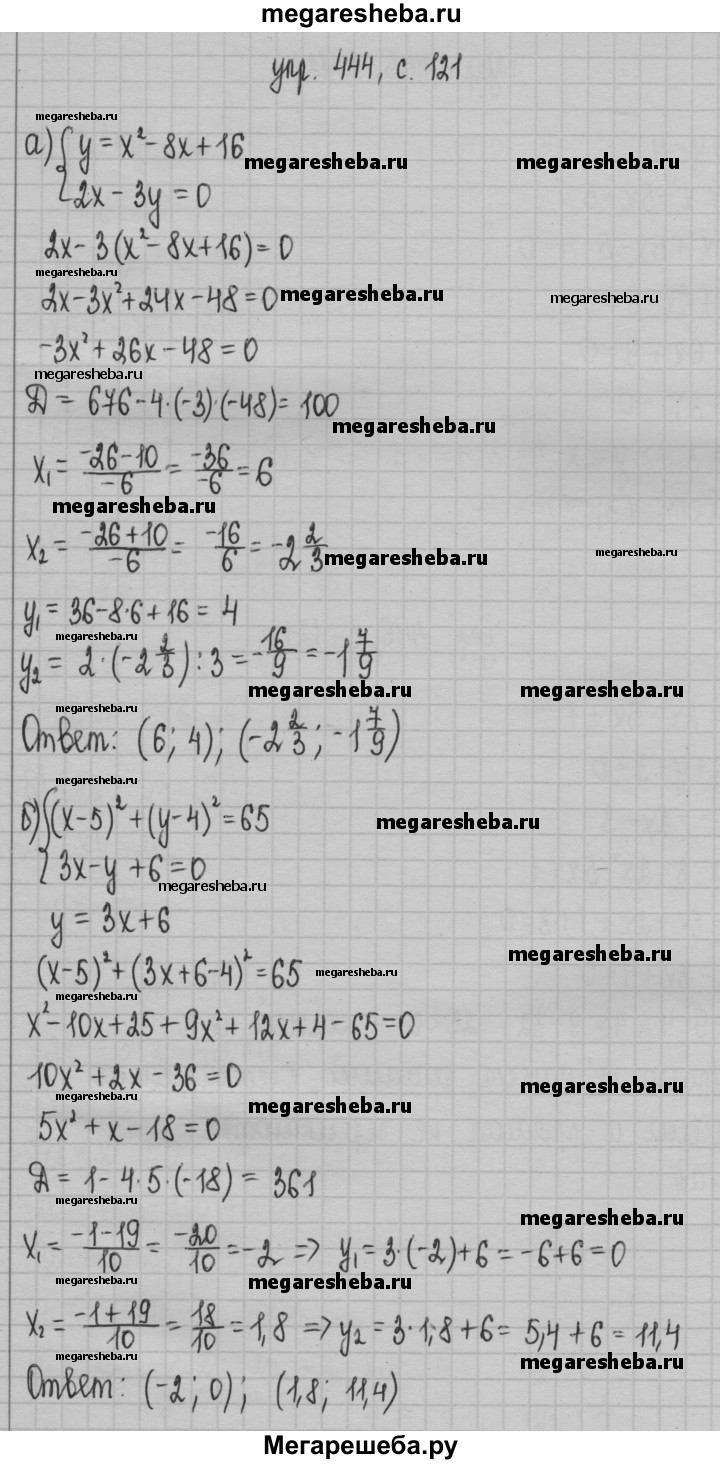 megaresheba.ru
упр. 444, с. 121
megaresheba.ru
а) { y = x² - 8x + 16
megaresheba.ru megaresheba.ru
2x - 3y = 0
2x - 3(x² - 8x + 16) = 0
megaresheba.ru
2x - 3x² + 24x - 48 = 0
megaresheba.ru megaresheba.ru
-3x² + 26x - 48 = 0
megaresheba.ru
Д = 676 - 4·(-3)·(-48) = 100
megaresheba.ru
x₁ = -26-10/-6 = -36/-6 = 6
megaresheba.ru
x₂ = -26+10/-6 = -16/6 = -2 2/3
megaresheba.ru megaresheba.ru
y₁ = 36 - 8·6 + 16 = 4
megaresheba.ru
y₂ = 2·(-2 2/3) : 3 = -16/9 = -1 7/9
megaresheba.ru megaresheba.ru
megaresheba.ru
Ответ: (6; 4); (-2 2/3; -1 7/9)
megaresheba.ru
б) { (x-5)² + (y-4)² = 65
megaresheba.ru
3x - y + 6 = 0
megaresheba.ru
y = 3x + 6
megaresheba.ru
(x-5)² + (3x+6-4)² = 65
megaresheba.ru
megaresheba.ru
x² - 10x + 25 + 9x² + 12x + 4 - 65 = 0
10x² + 2x - 36 = 0
megaresheba.ru
megaresheba.ru megaresheba.ru
5x² + x - 18 = 0
Д = 1 - 4·5·(-18) = 361
megaresheba.ru
megaresheba.ru
x₁ = -1-19/10 = -20/10 = -2 => y₁ = 3·(-2)+6 = -6+6 = 0
megaresheba.ru megaresheba.ru
x₂ = -1+19/10 = 18/10 = 1,8 => y₂ = 3·1,8+6 = 5,4+6 = 11,4
megaresheba.ru megaresheba.ru
Ответ: (-2; 0); (1,8; 11,4)
Мегарешеба.ру